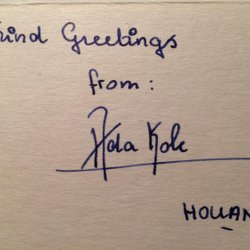 Kind Greetings
from:
Ada Kok
HOLLAN